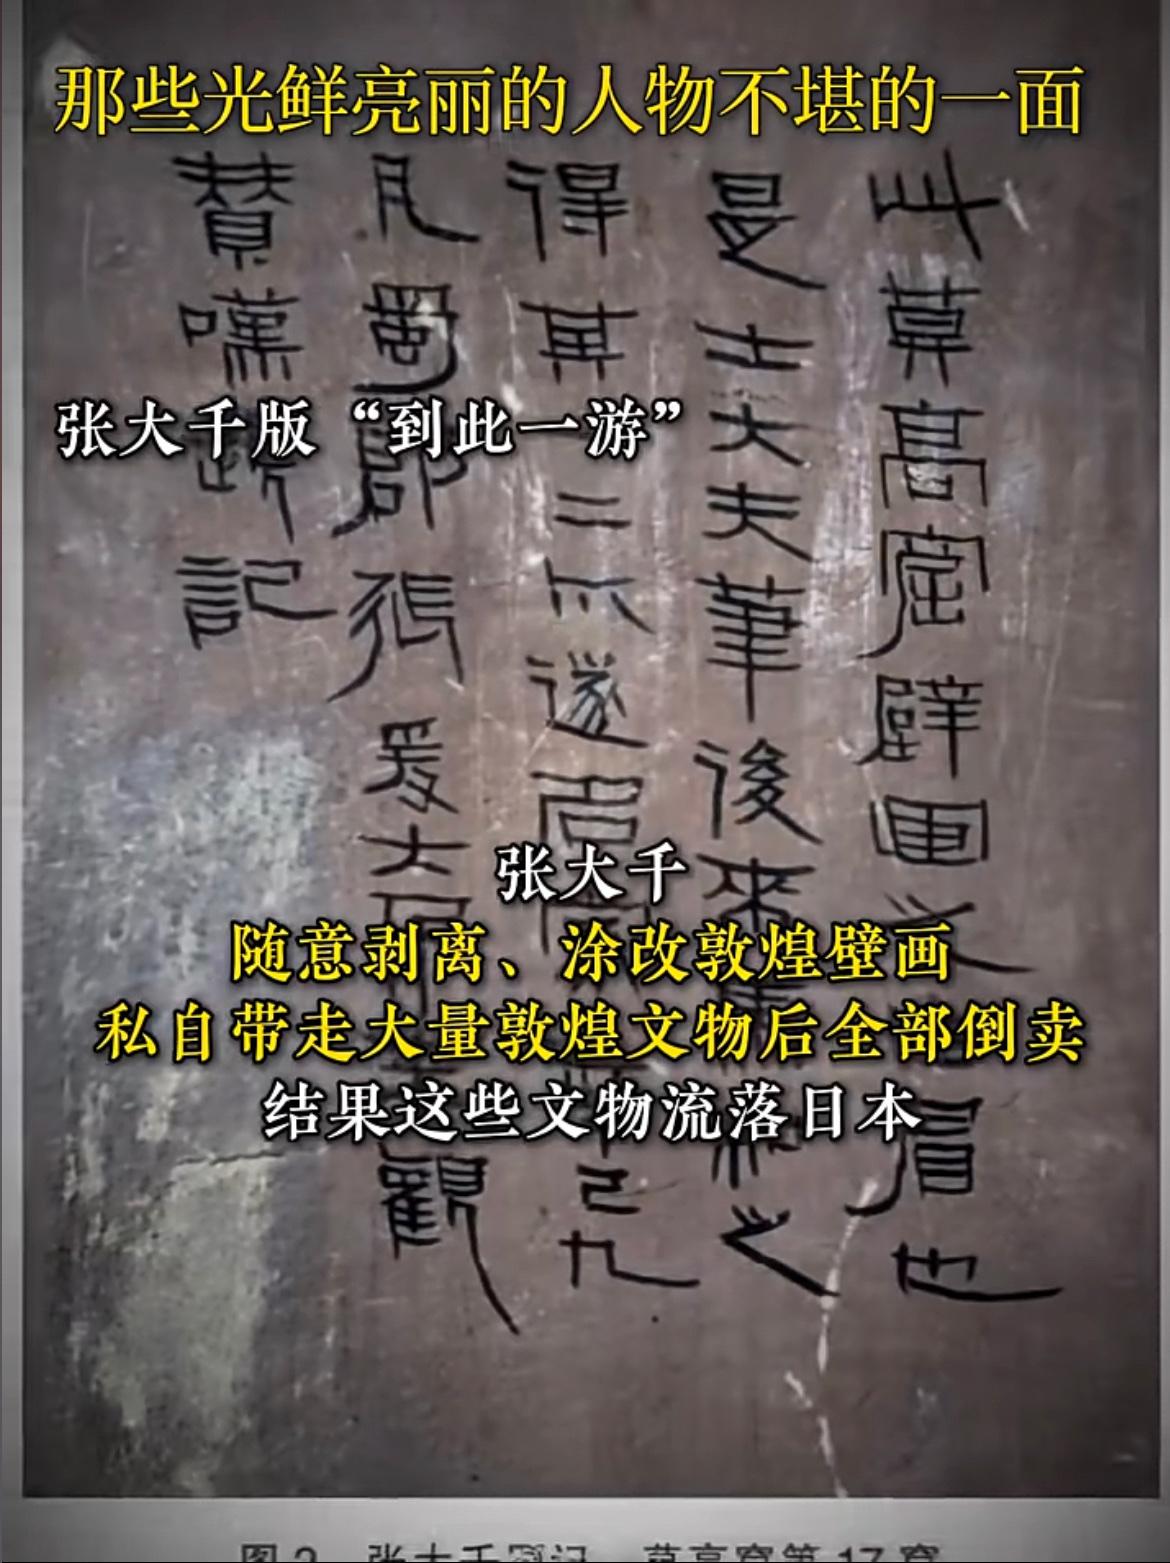 那些光鲜亮丽的人物不堪的一面
张大千版“到此一游”
张大千
随意剥离、涂改敦煌壁画
私自带走大量敦煌文物后全部倒卖
结果这些文物流落日本
此莫高窟壁畫之眉也
是士大夫筆後來之
得其二遂巳九
月蜀郡張爰大觀
贊嘆題記
张大千题记 莫高窟第17窟